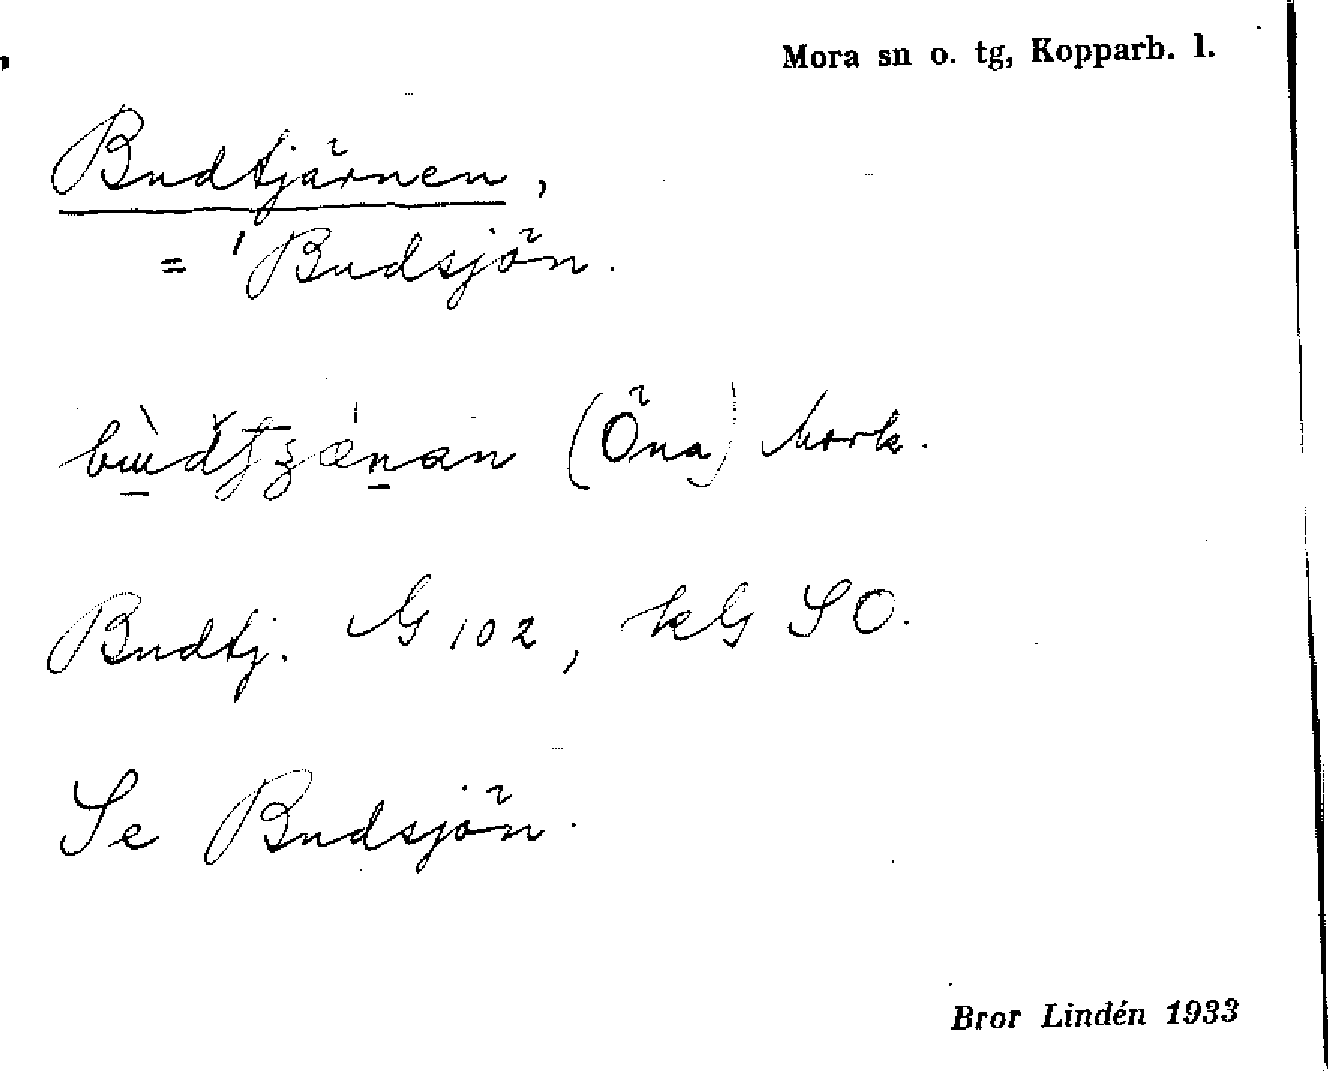 Mora sn o. tg, Kopparb. l.
Budtjärnen,
= 'Budsjön.
(Öna) Mork.
Budtj. G 102, kG SO.
Se Budsjön.
Bror Lindén 1933